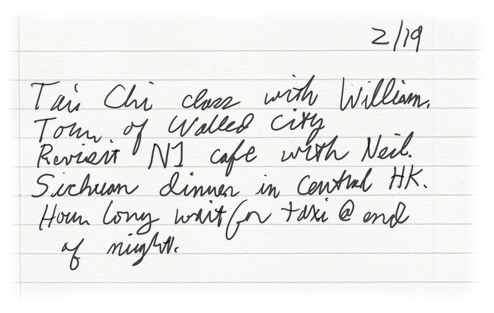 2/19
Tai Chi class with William.
Tour of Walled City
Revisit N1 cafe with Neil.
Sichuan dinner in Central HK.
Hour long wait for taxi @ end
of night.